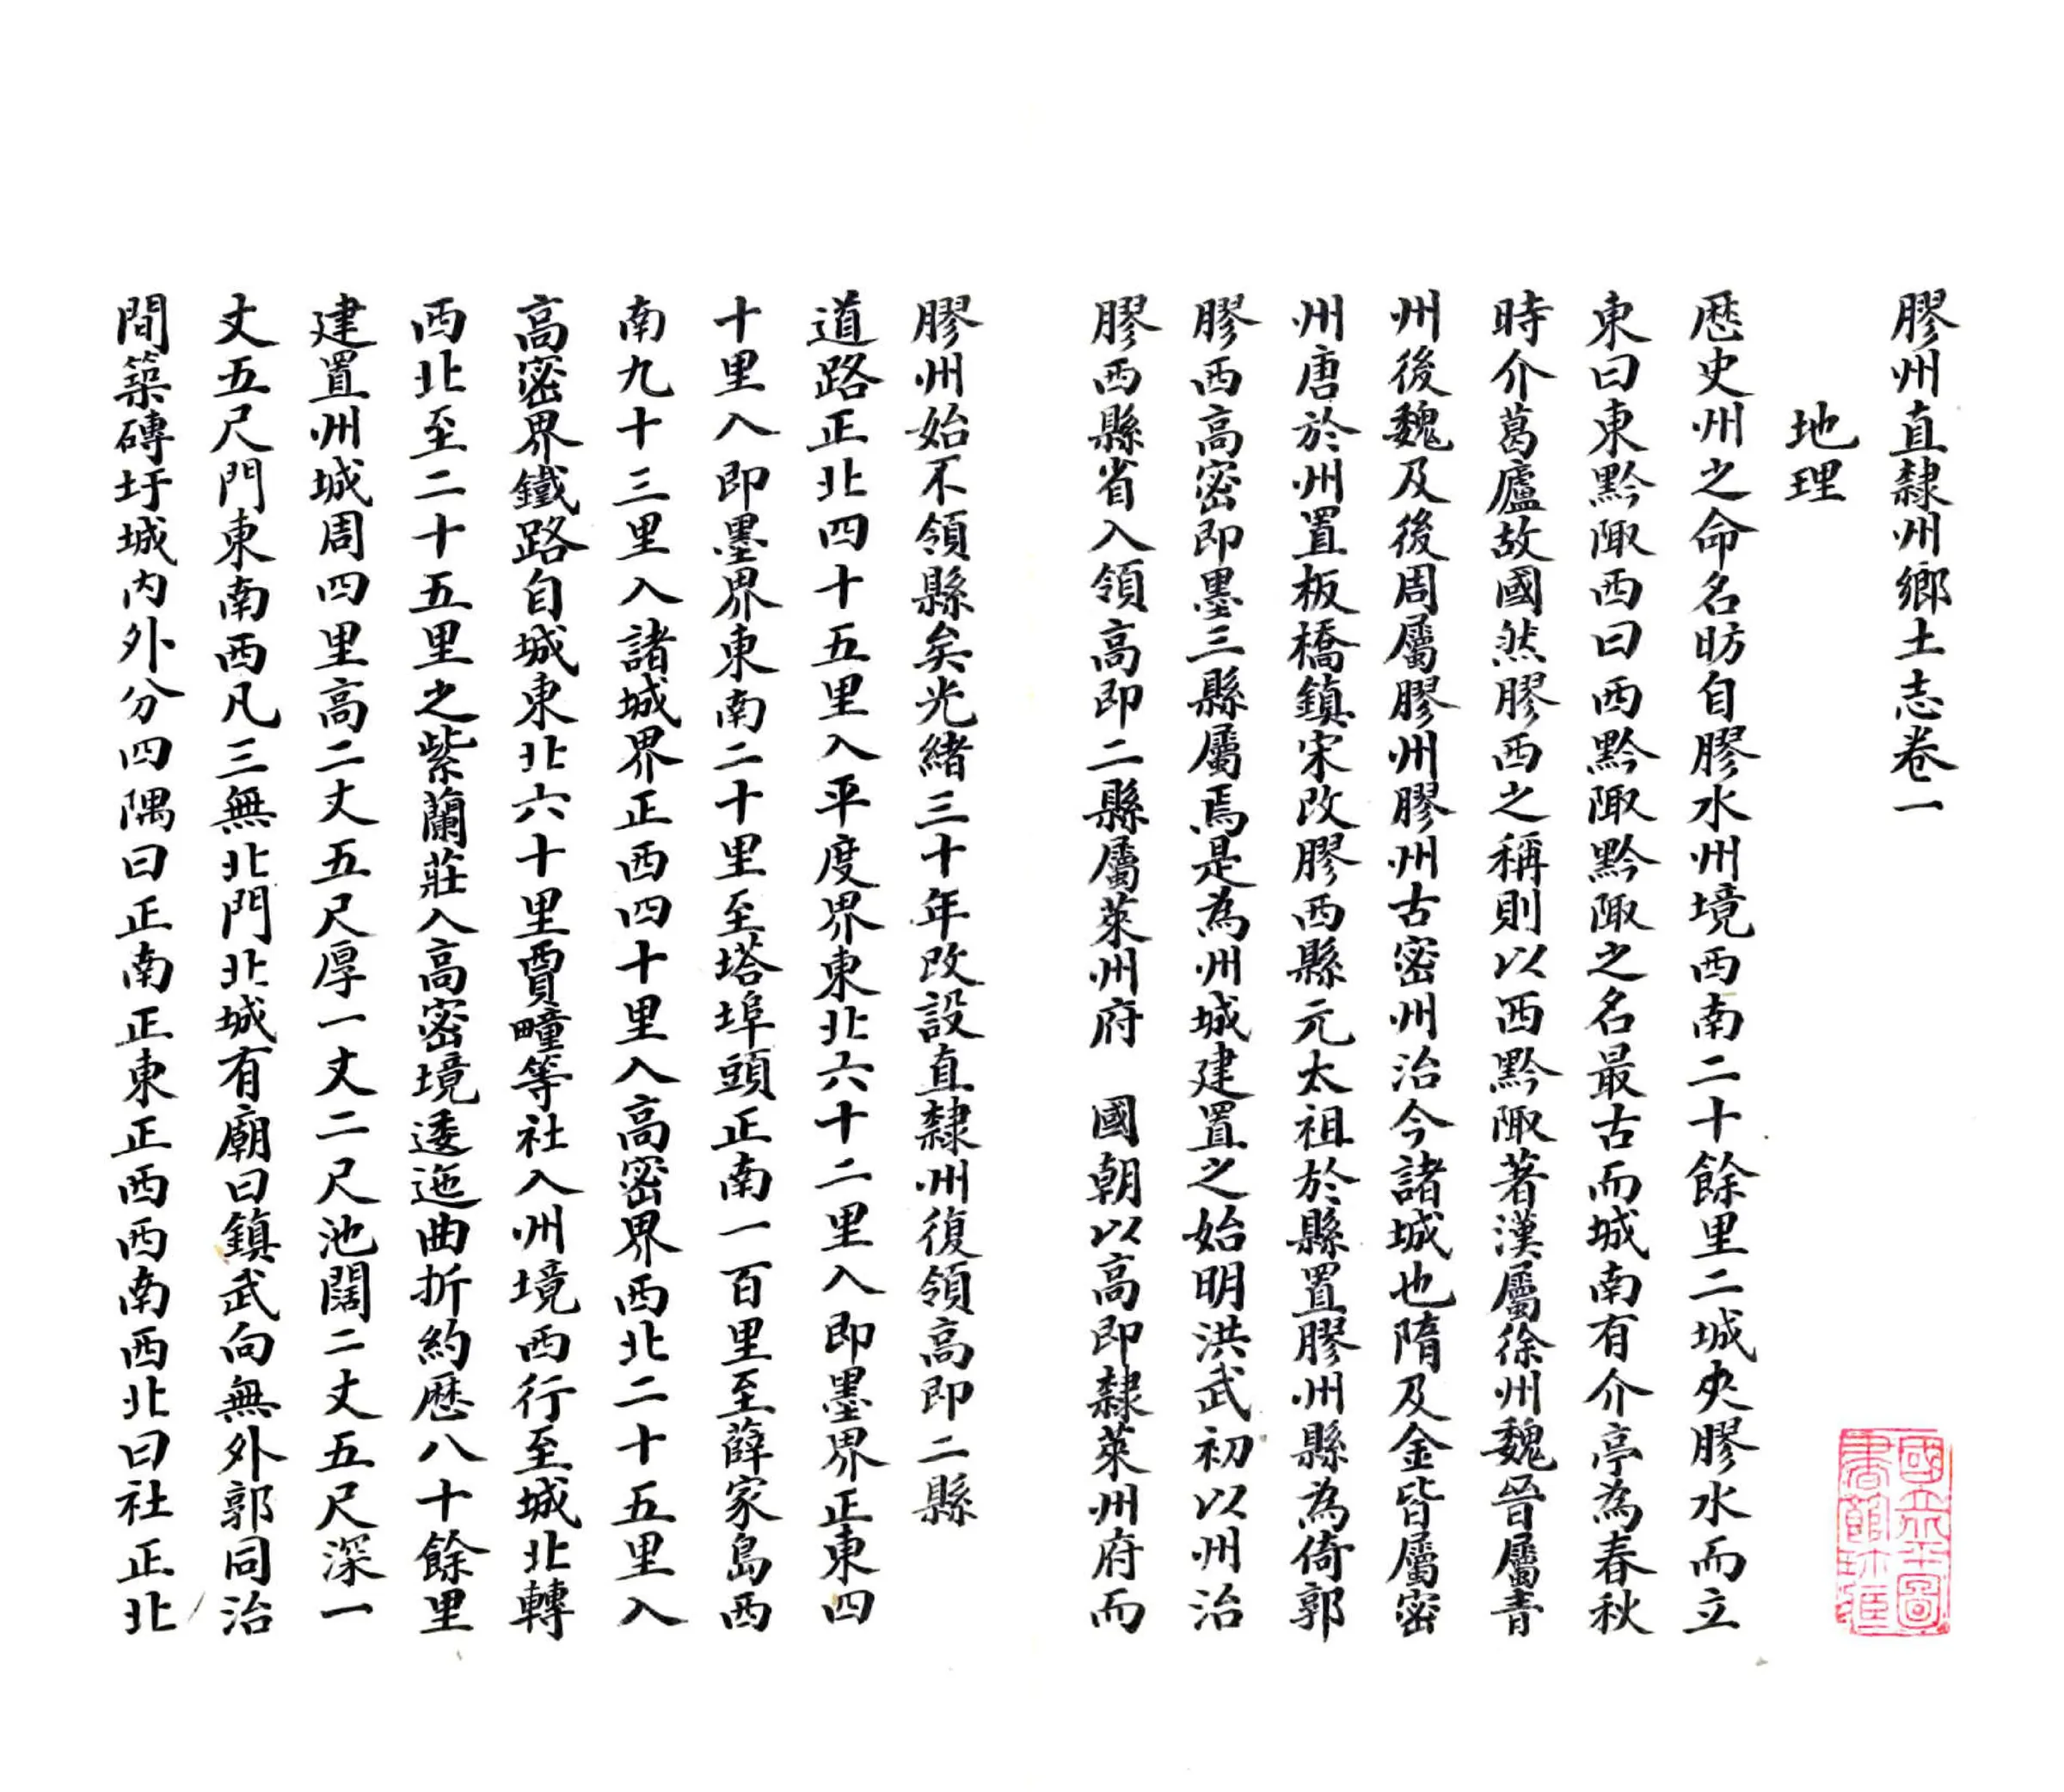 膠州直隸州鄉土志卷一
地理
歷史州之命名昉自膠水州境西南二十餘里二城夾膠水而立
東曰東黔陬西曰西黔陬黔陬之名最古而城南有介亭為春秋
時介葛廬故國然膠西之稱則以西黔陬著漢屬徐州魏晉屬青
州後魏及後周屬膠州膠州古密州治今諸城也隋及金皆屬密
州唐於州置板橋鎮宋改膠西縣元太祖於縣置膠州縣為倚郭
膠西高密即墨三縣屬焉是為州城建置之始明洪武初以州治
膠西縣省入領高即二縣屬萊州府　國朝以高即隸萊州府而
膠州始不領縣矣光緒三十年改設直隸州復領高即二縣
道路正北四十五里入平度界東北六十二里入即墨界正東四
十里入即墨界東南二十里至塔埠頭正南一百里至薛家島西
南九十三里入諸城界正西四十里入高密界西北二十五里入
高密界鐵路自城東北六十里賈疃等社入州境西行至城北轉
西北至二十五里之紫蘭莊入高密境逶迤曲折約歷八十餘里
建置州城周四里高二丈五尺厚一丈二尺池闊二丈五尺深一
丈五尺門東南西凡三無北門北城有廟曰鎮武向無外郭同治
間築磚圩城內外分四隅曰正南正東正西西南西北曰社正北
國立北平圖
書館珍藏